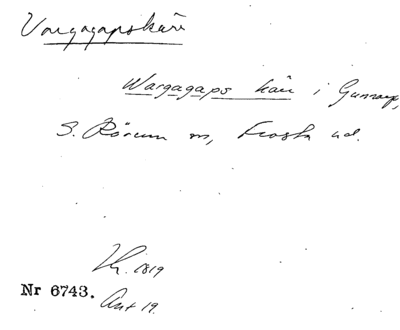 Vargagapskärr
Wargagaps kärr i Gunnarp,
S. Rörum sn, Frosta hd.
1819
Nr 6743. Akt 19.